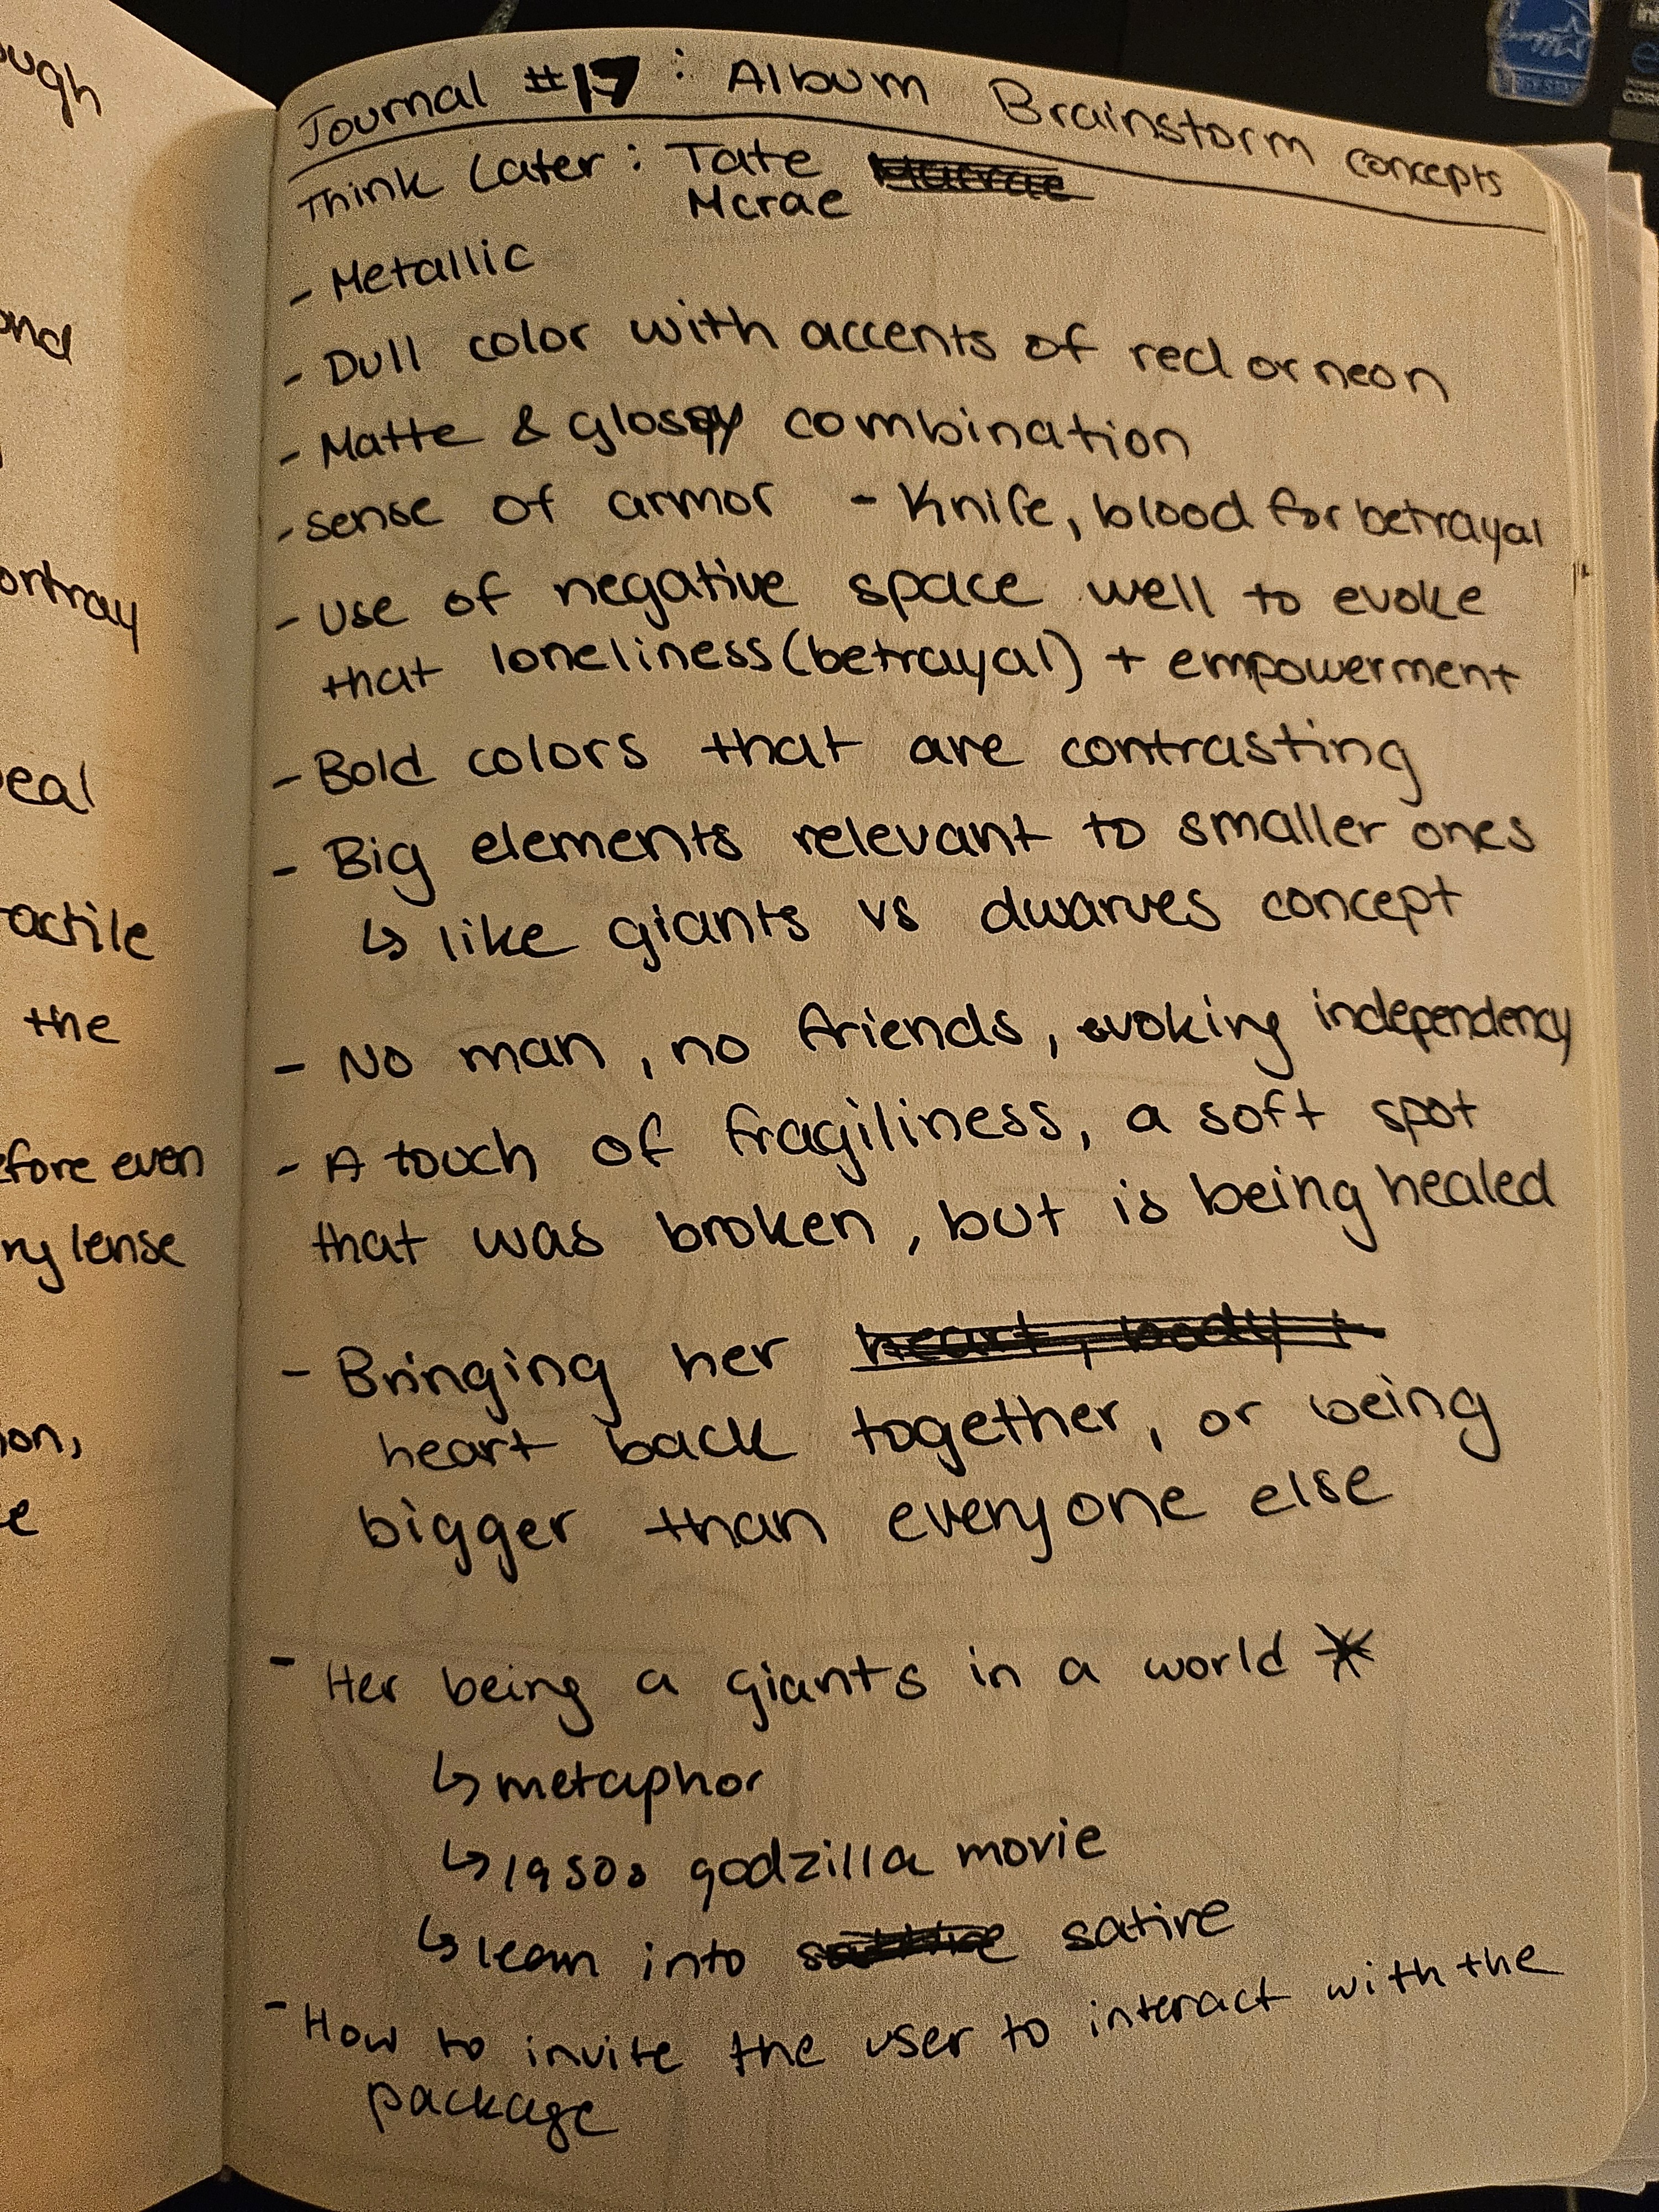 ough
ond
ortray
eal
actile
the
efore even
ry lense
ion,
e
Journal #17: Album Brainstorm concepts
Think Later: Tate
Mcrae
- Metallic
- Dull color with accents of red or neon
- Matte & glossy combination
- sense of armor - Knife, blood for betrayal
- Use of negative space well to evoke
that loneliness (betrayal) + empowerment
- Bold colors that are contrasting
- Big elements relevant to smaller ones
↳ like giants vs dwarves concept
- No man, no friends, evoking independency
- A touch of fragiliness, a soft spot
that was broken, but is being healed
- Bringing her heart, body +
heart back together, or being
bigger than everyone else
- Her being a giants in a world *
↳ metaphor
↳ 1950s godzilla movie
↳ lean into satire
- How to invite the user to interact with the
package